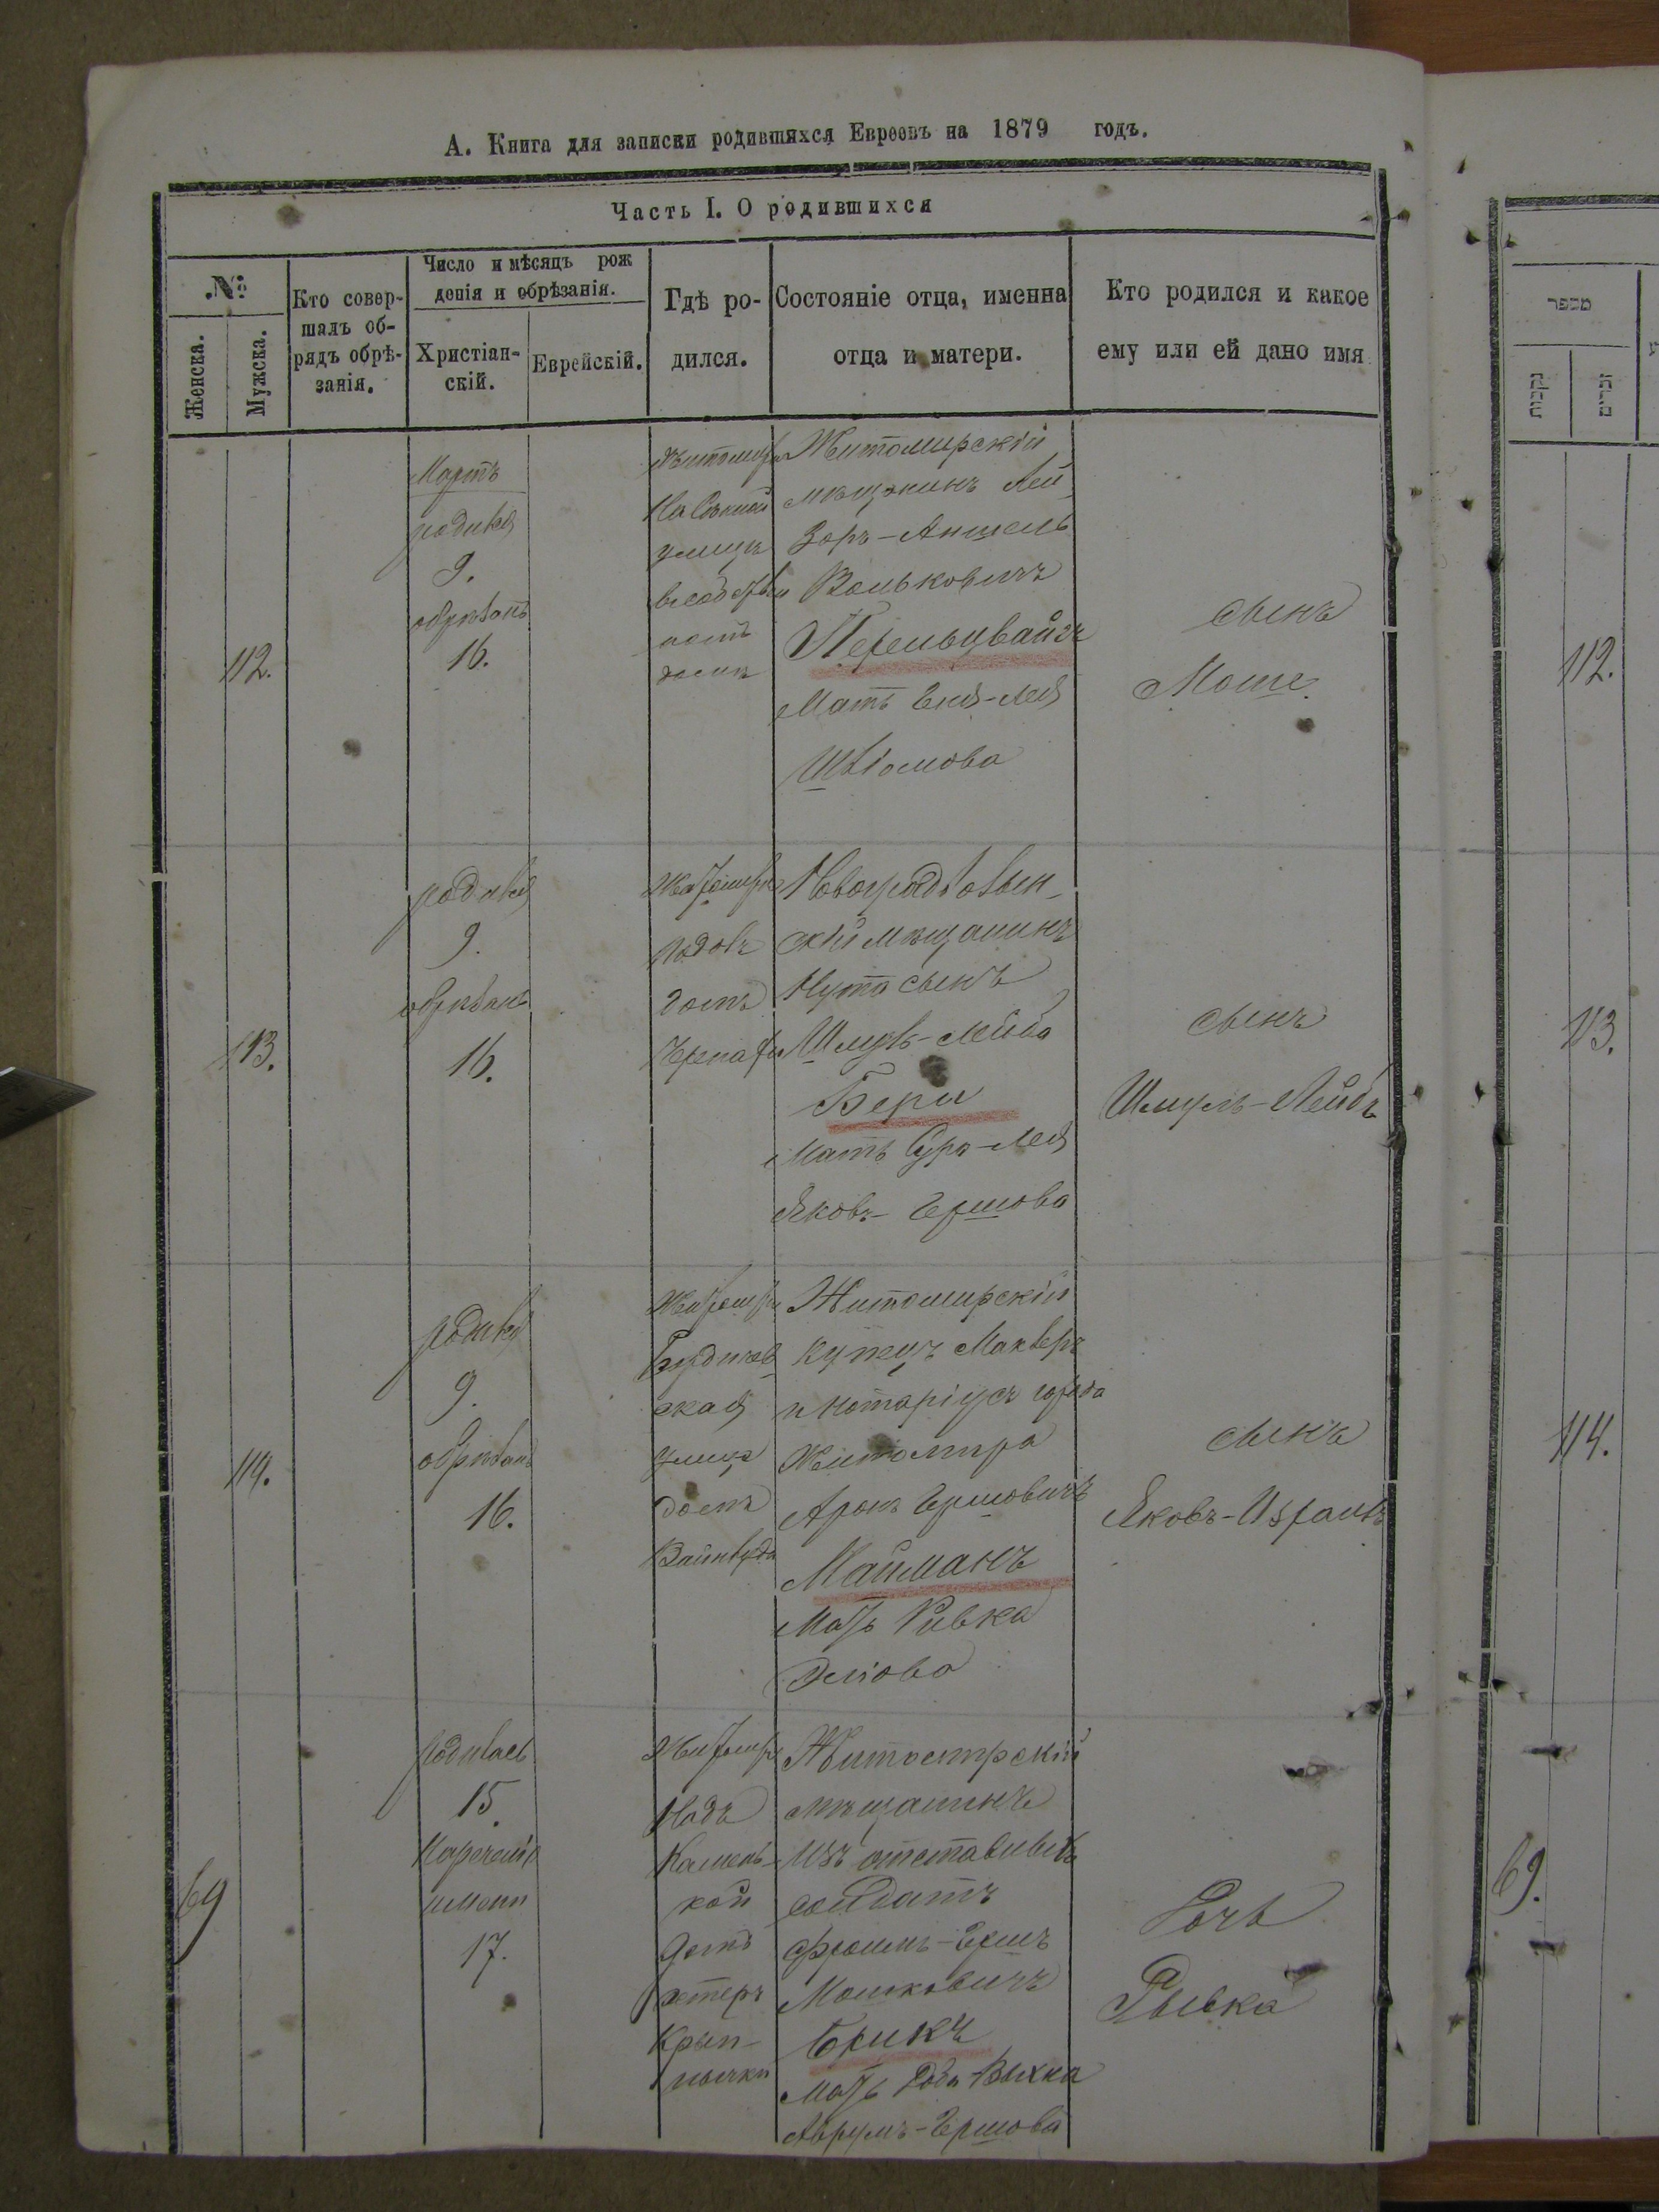 А. Книга для записки родившихся Евреевъ на 1879 годъ.
Часть I. О родившихся
№
Женска.
Мужска.
Кто совер-
шалъ об-
рядъ обрѣ-
занія.
Число и мѣсяцъ рож
денія и обрѣзанія.
Христіан-
скій.
Еврейскій.
Гдѣ ро-
дился.
Состояніе отца, именна
отца и матери.
Кто родился и какое
ему или ей дано имя
מספר
נקבות
זכרים
112.
Мартъ
родился
9.
обрѣзанъ
16.
Житомиръ
улица
домъ
Житомирскій
мѣщанинъ Лей
зоръ-Аншель
Вольковичъ
Перельцвайгъ
Мать Ения-Лея
Шліомова
сынъ
Моше.
112.
113.
родился
9.
обрѣзанъ
16.
Житомиръ
домъ
Новоградволын-
скій мѣщанинъ
Нута сынъ
Шмуль-Лейба
Бери
Мать Сура-Лея
Яковъ-Гершова
сынъ
Шмуль-Лейбъ
113.
114.
родился
9.
обрѣзанъ
16.
Житомиръ
Бердичев
ская
улица
домъ
Житомирскій
купецъ Маклеръ
и нотаріусъ города
Житомира
Аронъ Гершовичъ
Майманъ
Мать Ривка
Эліова
сынъ
Яковъ-Израиль
114.
69
родилась
15.
Наречено
имени
17.
Житомиръ
Надъ
Камень-
кой
домъ
Житомирскій
мѣщанинъ
изъ отставныхъ
солдатъ
Фроимъ-Гершъ
Мошковичъ
Брикъ
Мать Доба Выхна
Аврумъ-Гершова
Дочь
Рывка
69.